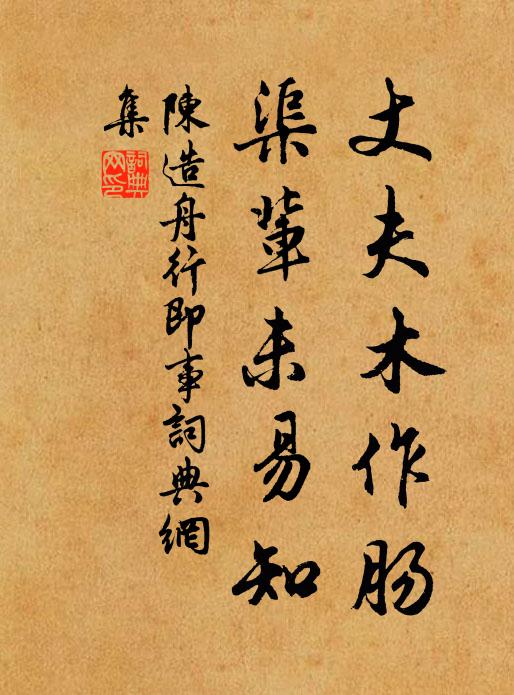 丈夫木作肠
渠辈未易知
陳造舟行即事詞典網
集
詞典
网印